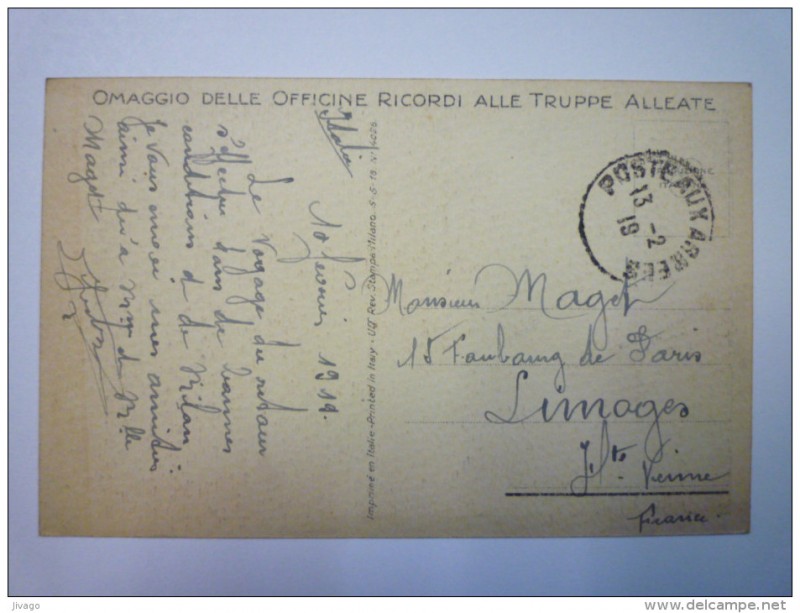 OMAGGIO DELLE OFFICINE RICORDI ALLE TRUPPE ALLEATE
Italie
10 février 1919.
Le voyage du retour
s'effectue dans de bonnes
conditions de Milan
Je vous envoi mes amitiés
ainsi qu'à Mme de Mlle
Maget
Imprimé en Italie - Printed in Italy - Uff. Rev. Stampa Milano. 5-6-18
POSTE AUX ARMEES
13 - 2
19
Monsieur Maget
15 Faubourg de Paris
LIMOGES
Hte Vienne
France.
jivago
delcampe.net